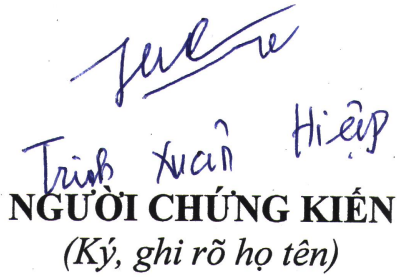 Trịnh Xuân Hiệp
NGƯỜI CHỨNG KIẾN
(Ký, ghi rõ họ tên)